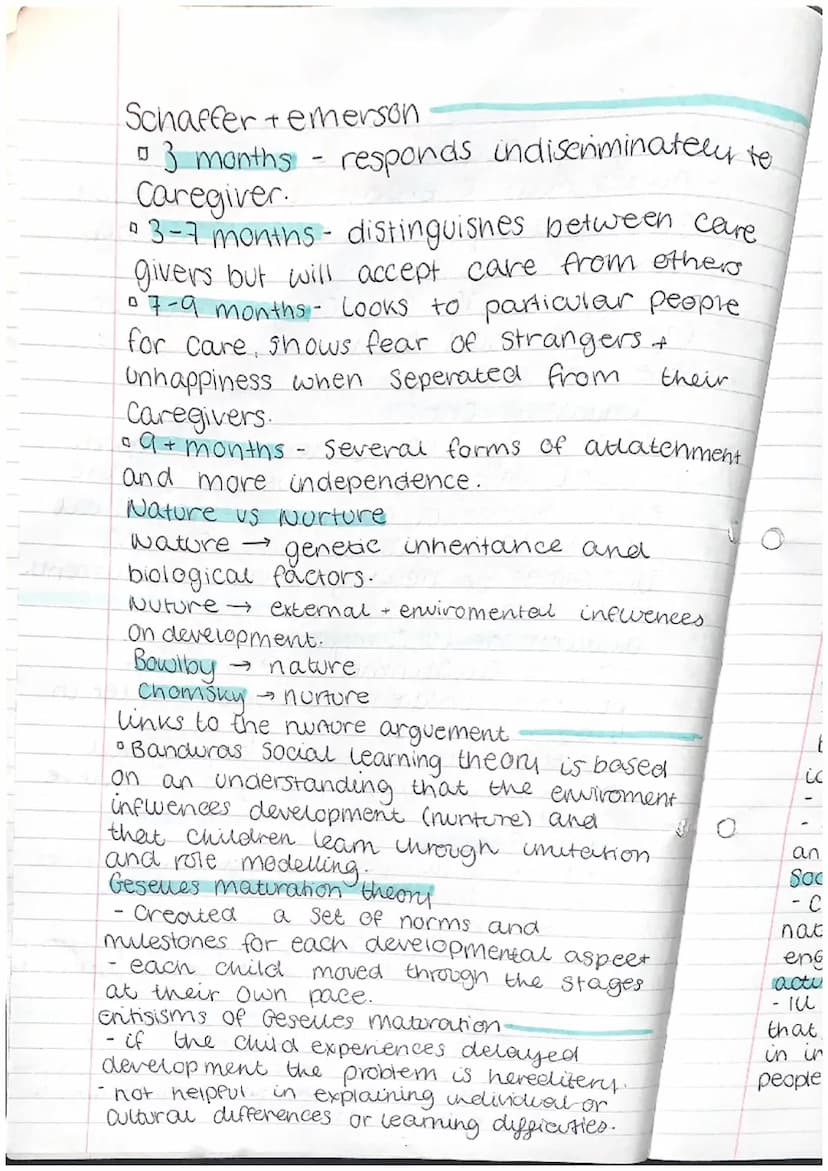 Schaffer + emerson
▫ 3 months - responds indiscriminately to
caregiver.
▫ 3-7 months - distinguishes between care
givers but will accept care from others
▫ 7-9 months - Looks to particular people
for care, shows fear of strangers +
unhappiness when seperated from their
caregivers.
▫ 9+ months - Several forms of attatchment
and more independence.
Nature vs Nurture
Nature → genetic inheritance and
biological factors.
Nuture → external + enviromental influences
on development.
Bowlby → nature
Chomsky → nurture
links to the nurture arguement
° Banduras Social Learning theory is based
on an understanding that the enviroment
influences development (nurture) and
that children learn through imitation
and role modelling.
Geselles maturation theory
- Created a set of norms and
milestones for each developmental aspect
- each child moved through the stages
at their own pace.
critisisms of Geselles maturation
- if the child experiences delayed
development the problem is hereditery.
- not helpful in explaining individual or
cultural differences or learning difficulties.
an
Soc
- C
nat
eng
actu
that
in in
people